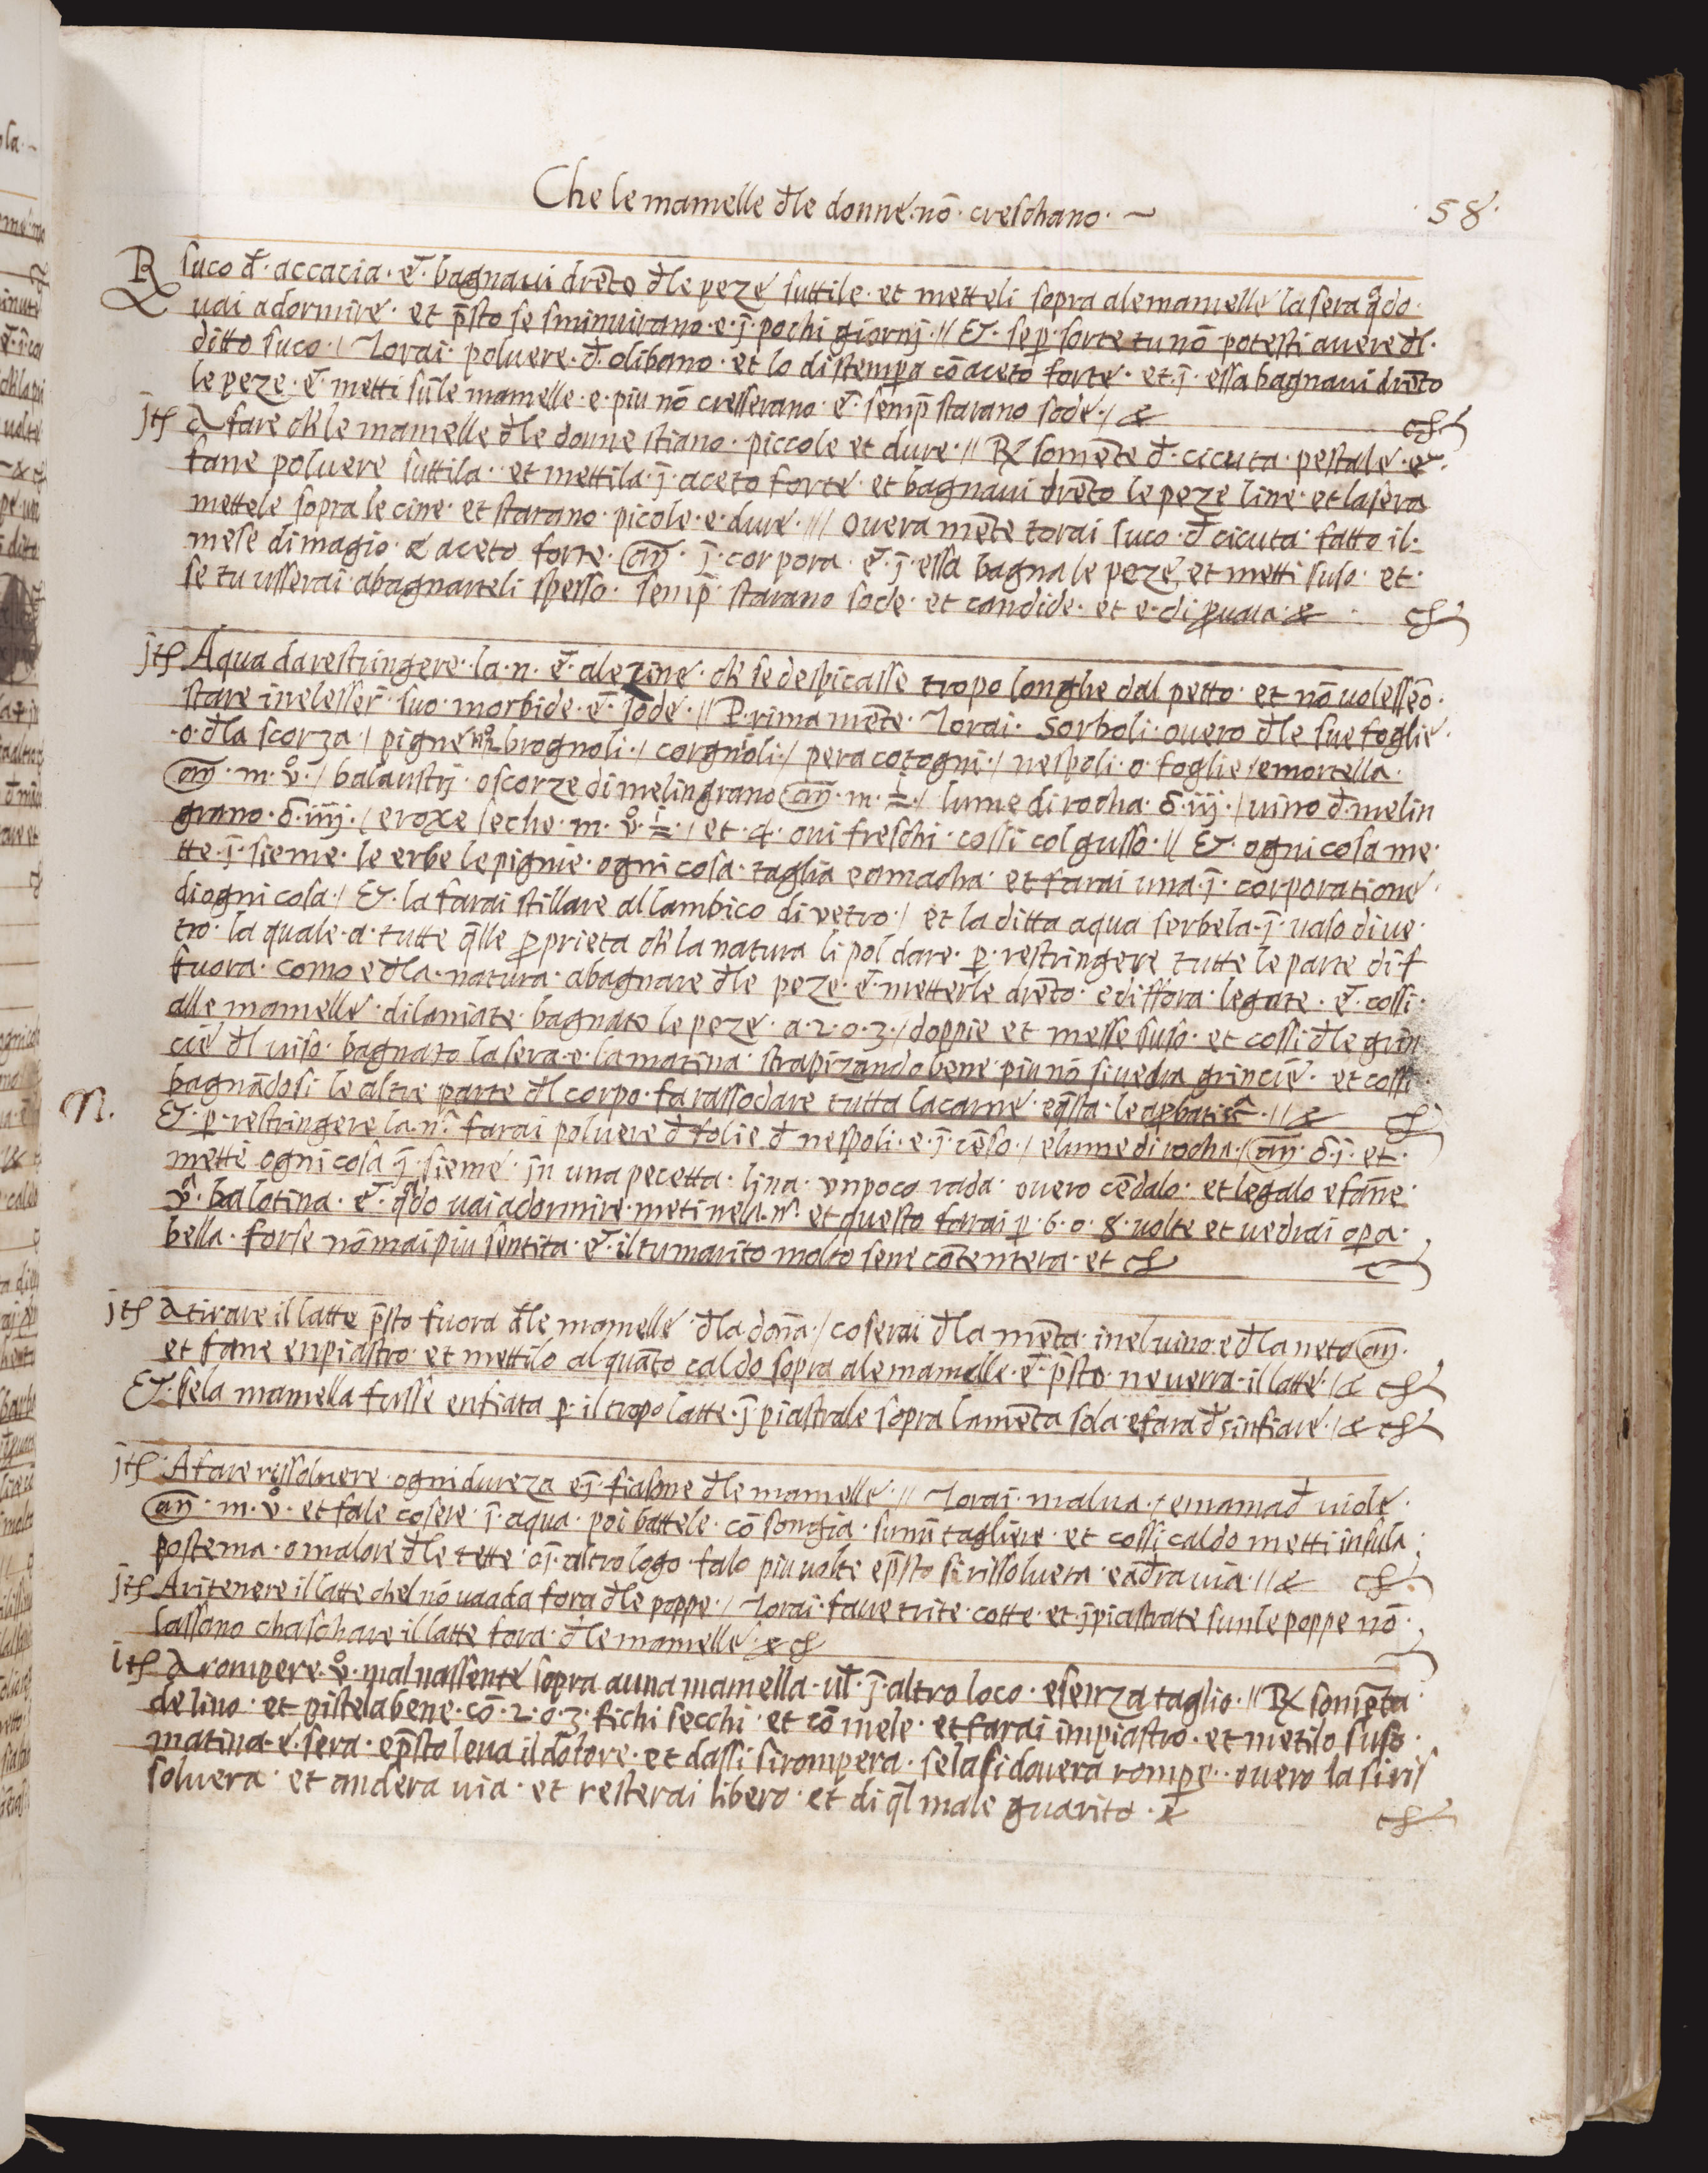 Che le mamelle d̄le donne nō creschano ~
58
R suco d̄ accacia · et bagnaui drēto d̄le peze suttile · et metteli sopra ale mamelle la sera qdo ·
uai a dormire · et p̄sto se sminuirano · e · j̄ · pochi giornj · // Et · se p̱ sorte tu nō potesti auere d̄l ·
ditto suco · / Torai · poluere · d̄ · olibano · et lo distempa cō aceto forte · et · j̄ · essa bagnaui drēto
le peze · et metti sūle mamelle · e · piu nō cresserano · et semp̄ starano sode · / &
jtʃ A fare ch̄ le mamelle d̄le donne stiano · piccole et dure · // ℞ somēte d̄ · cicuta · pestale · et ·
fane poluere suttila · et mettila · j̄ · aceto forte · et bagnaui drēto le peze line · et la sera
mettele sopra le cine · et starano · picole · e · dure · /// ouera mēte torai suco · d̄ cicuta · fatto il ·
mese di magio · & aceto forte · an̄ · j̄ · corpora · et · j̄ · essa bagna le peze, et metti suso · et ·
se tu usserai · abagnarteli spesso · semp̄ · starano sode · et candide · et e · di ꝓuata · &
jtʃ Aqua da restringere · la · n · et · ale zine · ch̄ se despicasse tropo longhe dal petto · et nō uolessēo ·
stare inelesser̄ · suo · morbide · et · sode · // P · rima mēte · Torai · sorboli · ouero d̄le sue foglie ·
· o · d̄la scorza · / pigne brognoli · / corgnoli · / pera cotogni · / nespoli · o · foglie / e mortella ·
an̄ · m · v̊ · / balaustrj · o scorze di melingrano an̄ · m · / lume di rocha · iij · / uino d̄ melin
grano · iiij · / e roxe seche · m · v̊ · / et · 4 · oui freschi · cossi col gusso · // Et · ogni cosa me ·
tte · j̄ · sieme · le erbe le pignie · ogni cosa · taglia e amacha · et farai una · j̄ · corporatione ·
di ogni cosa · / Et · la farai stillare al lambico di vetro · / et la ditta aqua serbela · j̄ · uaso di ue ·
tro · la quale · a · tutte q̄lle ꝓprieta ch̄ la natura li pol dare · p̱ · restringere tutte le parte di f
fuora · como e d̄la · natura · abagnare d̄le peze · et metterle drēto · e diffora · legate · et · cossi ·
alle mamelle · dilaniate · bagnato le peze · a · 2 · o · 3 · / doppie et messe suso · et cossi d̄le grin
cie d̄l uiso · bagnato la sera · e · la matina · strapizando bene · piu nō si uedra grincie · et cossi ·
bagnādosi le altre parte d̄l corpo · fa rassodare tutta la carne · e q̄sta · le
N.
Et · p̱ · restringere la · n̂ · farai poluere d̄ folie d̄ nespoli · e · j̄ · cēso · / e lume di rocha · / an̄ · j · et ·
mette ogni cosa j̄ · sieme · jn una pecetta · ljna · vn poco rada · ouero cēdalo · et legalo e fāne ·
v̂ · balotina · et · qdo uai a dormire · meti nela · n̂ · et questo farai p̱ · 6 · o · 8 · uolte et uedrai opa ·
bella · forse nō mai piu sentita · et · il tu marito molto sene cōtentera · et
jtʃ A tirare il latte p̄sto fuora d̄le mamelle · d̄la dōna · / coserai d̄la mēta · inel uino · e d̄la neta an̄ ·
et fane enpiastro · et mettilo al quāto caldo sopra ale mamelle · et · p̄sto · ne uerra · il latte · / &
Et · se la mamella fusse enfiata p̱ · il tropo latte · j̄ · piastrale sopra la mēta sola · e fara d̄sinfiare · / &
jtʃ A fare rissoluere · ogni dureza e j̄ · fiasone d̄le mamelle · // Torai · malua · / e mama d̄ uiole ·
an̄ · m · v̊ · et fale cosere · j̄ · aqua · poi battele · cō songia · sunū tagliere · et cossi caldo metti in sula ·
postema · o malore d̄le tette · o j̄ · altro logo · falo piu uolte e p̄sto si rissoluera · e ad̄ra uia · // &
jtʃ A ritenere il latte chel nō uaada fora d̄le poppe · / Torai · faue trite · cotte · et · j̄piastrate sun le poppe nō ·
lassano chaschare il latte fora · d̄le mamelle · &
itʃ A rompere · v̊ · mal nassente sopra a una mamella · ul̄ · j̄ · altro loco · e senza taglio · // ℞ somēta ·
de lino · et pistela bene · cō · 2 · o · 3 · fichi secchi · et cō mele · et farai impiastro · et metilo suso ·
matina · e · sera · e p̄sto leua il dolore · et dassi si rompera · se la si douera rompe · · ouero la si ris
soluera · et andera uia · et resterai libero · et di q̄l male guarito · &